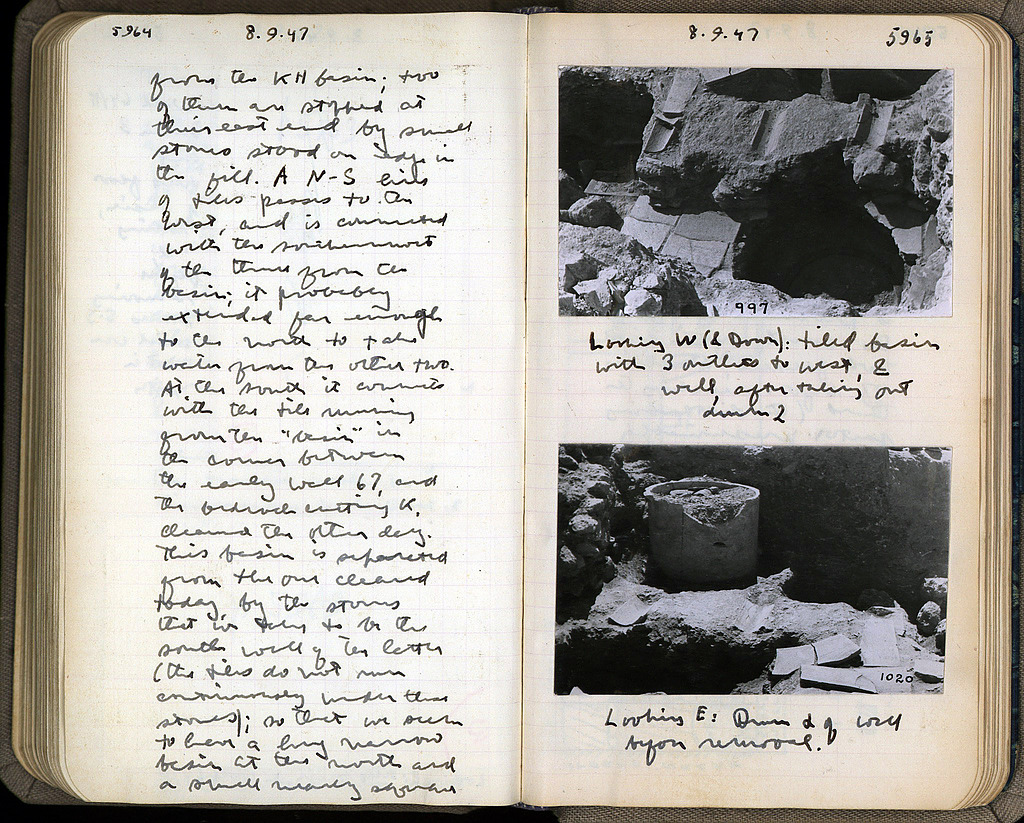 5964
8.9.47
from the KH basin; two
of them are stopped at
their east end by small
stones stood on edge in
the fill. A N-S line
of tiles passes to the
west, and is connected
with the southernmost
of the three from the
basin; it probably
extended far enough
to the north to take
water from the other two.
At the south it connects
with the tile running
from the "basin" in
the corner between
the early well 67, and
the bedrock cutting K,
cleaned the other day.
This basin is separated
from the one cleaned
today by the stones
that we take to be the
south wall of the latter
(the tiles do not run
continuously under these
stones); so that we seem
to have a long narrow
basin at the north and
a small nearly square
8.9.47
5965
997
Looking W (& Down): tiled basin
with 3 outlets to west, &
well, after taking out
drum 2
1020
Looking E: Drum of well
before removal.